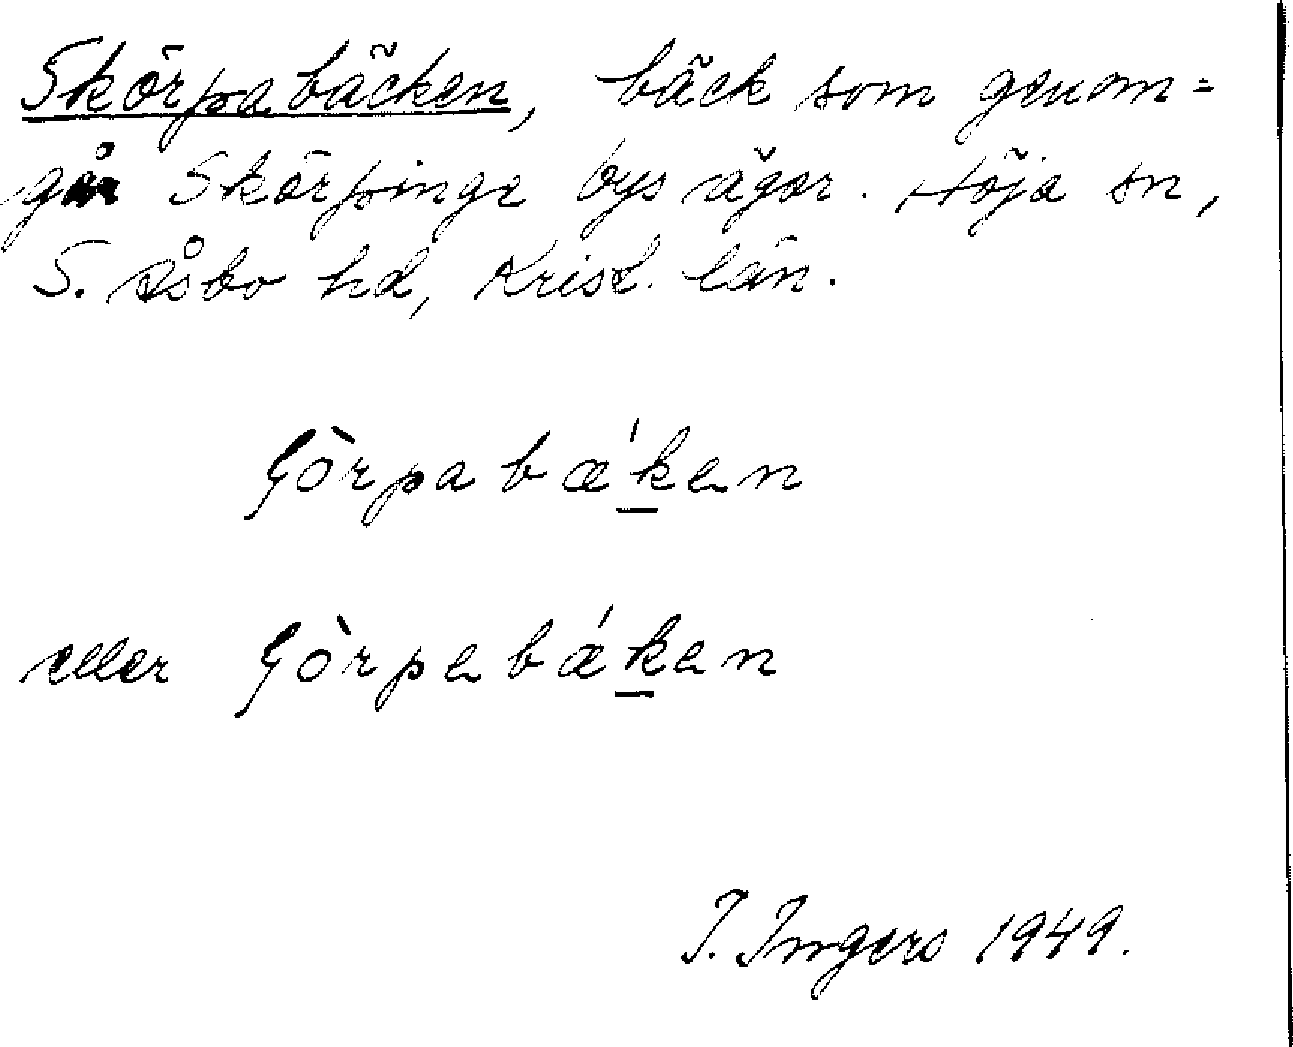 Skörpabäcken, bäck som genom=
går Skörpinge bys ägor. Höja sn,
S. Åsbo hd, Krist. län.
ʃòrpabǽken
eller ʃòrpebǽken
I. Ingers 1949.